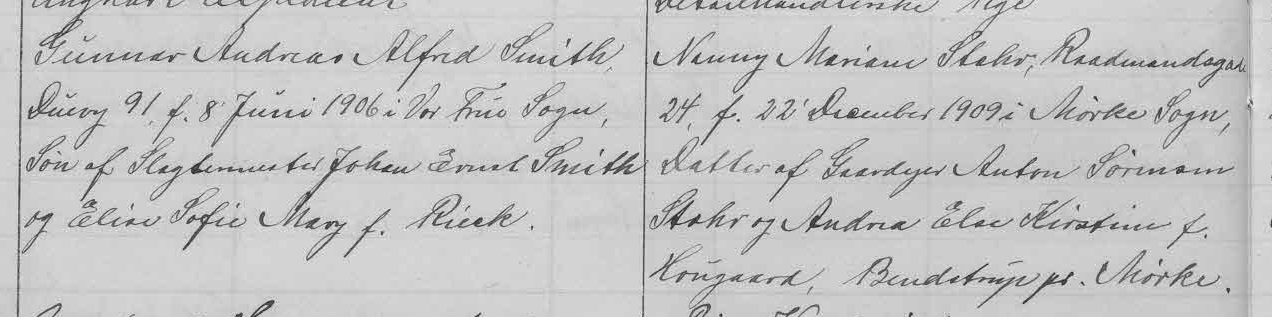 Gunnar Andreas Alfred Smith,
Duevg 91, f. 8 Juni 1906 i Vor Frue Sogn,
Søn af Slagtermester Johan Ernst Smith
og Elise Sofie Mary f. Rieck.
Nanny Mariane Stahr, Raadmandsgade
24, f. 22 December 1909 i Mørke Sogn,
Datter af Gaardejer Anton Sørensen
Stahr og Andrea Else Kirstine f.
Hougaard, Bendstrup pr. Mørke.